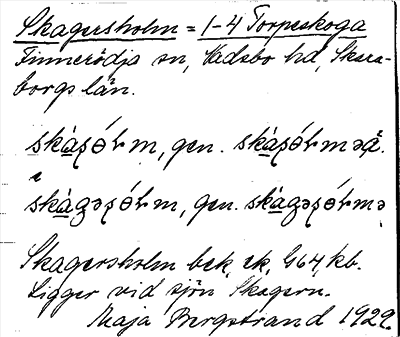 Skagersholm = 1-4 Torpeskoga
Finnerödja sn, Vadsbo hd, Skara-
borgs län.
skáʂórm, gen. skáʂórmə
skágəʂórm, gen. skágəʂórmə
Skagersholm bek, ek, G64, kb.
Ligger vid sjön Skagern.
Maja Bergstrand 1929.